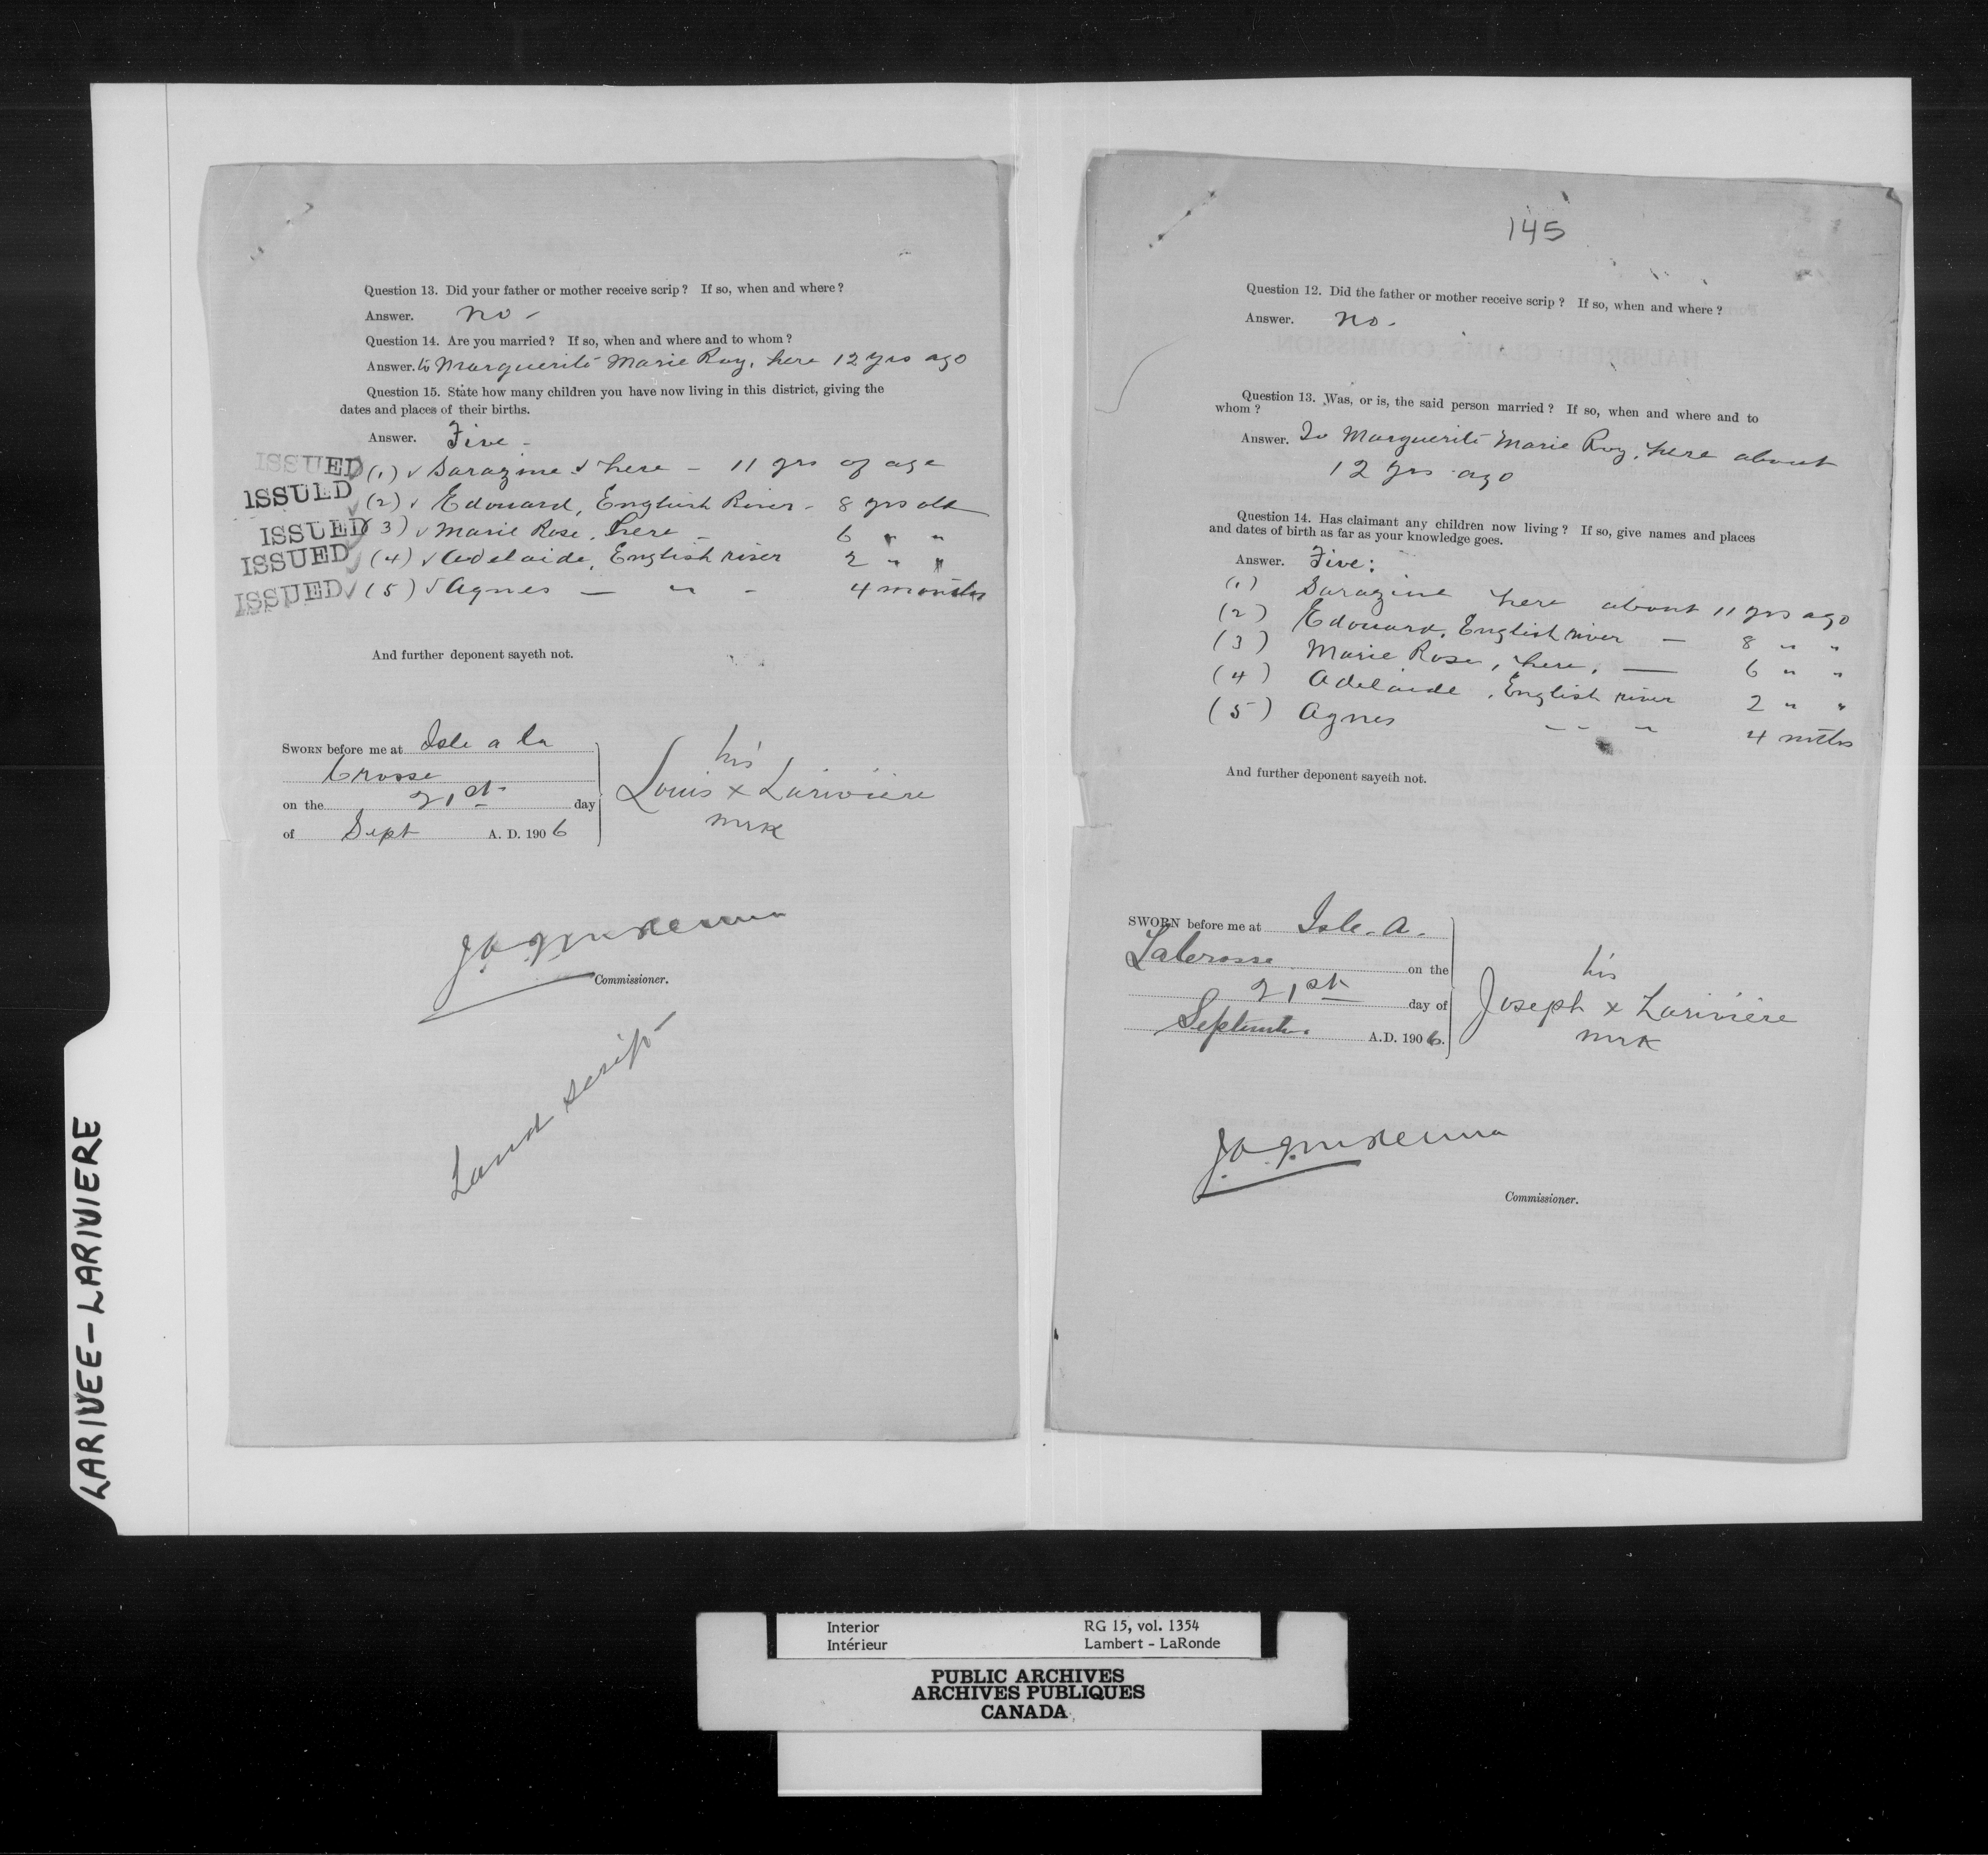 LARIVEE-LARIVIERE
Question 13. Did your father or mother receive scrip? If so, when and where?
Answer. no -
Question 14. Are you married? If so, when and where and to whom?
Answer. to Marguerite Marie Roy, here 12 yrs ago
Question 15. State how many children you have now living in this district, giving the
dates and places of their births.
Answer. Five -
ISSUED (1) ✓ Sarazine ✓ here - 11 yrs of age
ISSUED (2) ✓ Edouard, English River - 8 yrs old
ISSUED (3) ✓ Marie Rose, here - 6 " "
ISSUED ✓ (4) ✓ Adelaide, English river 2 " "
ISSUED ✓ (5) ✓ Agnes — " - 4 months
And further deponent sayeth not.
SWORN before me at Isle a la
Crosse
on the 21st day
of Sept A. D. 1906
his
Louis x Lariviere
mrk
Commissioner.
Land scrip
145
Question 12. Did the father or mother receive scrip? If so, when and where?
Answer. no.
Question 13. Was, or is, the said person married? If so, when and where and to
whom?
Answer. To Marguerite Marie Roy, here about
12 yrs ago
Question 14. Has claimant any children now living? If so, give names and places
and dates of birth as far as your knowledge goes.
Answer. Five:
(1) Sarazine here about 11 yrs ago
(2) Edouard, English river — 8 " "
(3) Marie Rose, here, — 6 " "
(4) Adelaide, English river 2 " "
(5) Agnes -- " 4 mths
And further deponent sayeth not.
SWORN before me at Isle. a.
Lacrosse on the
21st day of
September A.D. 1906.
his
Joseph x Lariviere
mrk
Commissioner.
Interior RG 15, vol. 1354
Intérieur Lambert - LaRonde
PUBLIC ARCHIVES
ARCHIVES PUBLIQUES
CANADA